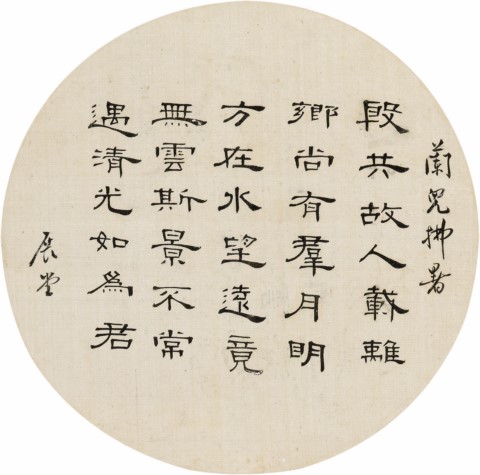 蘭兒拂暑
共故人載離
鄉尚有羣月明
方在水望遠竟
無雲斯景不常
遇清光如爲君
展堂